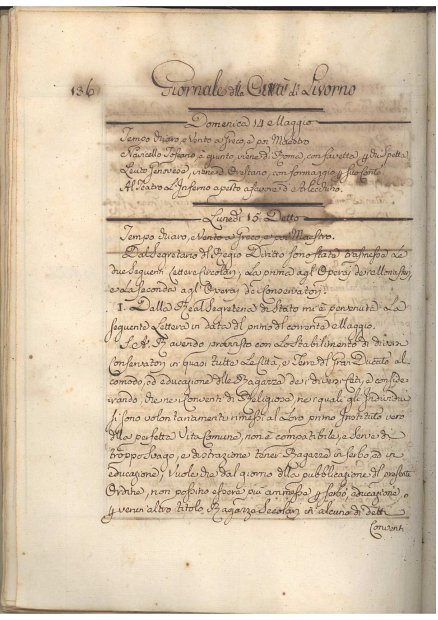 136 Giornale della Città di Livorno
Domenica 14 Maggio
Tempo Vuaro, e Vento a Greco, e poi Maestro
Navicello Toscano a quinto, viene di Roma, con favetta, per di Spetta
Leuto Genovese, viene d'Oristano, con formaggio per suo conto
Al Teatro L'Inferno aperto a favore d'Arlecchino.
Lunedì 15 Detto
Tempo Vuaro, e Vento a Greco e poi Maestro.
Dal Segretario del Regio Diritto sono state trasmesse Le
due seguenti Lettere circolari, La prima agl'Operaj de' Monasteri
e La seconda agl'Operaj de' Conservatori.
I. Dalla Real Segreteria di Stato mi è pervenuta La
seguente Lettera in data del primo del corrente Maggio.
S. A. R. avendo provvisto con Lo stabilimento di diversi
Conservatori in quasi tutte Le Città, e Terre del Gran Ducato al
comodo, ed educazione delle Ragazze de' diversi ceti, e conside-
rando, che ne' Conventi di Religiose, ne' quali gli Individui
si sono volontariamente rimessi al Loro primo Instituto vero
della perfetta Vita Comune, non è compatibile, e serve di
troppo Svago, e distrazione tener Ragazze in serbo, ed in
educazione, Vuole, che dal giorno della pubblicazione del presente
Ordine, non possino essere più ammesse per serbo, educazione, o
per verun'altro titolo Ragazze Secolari in alcuno di detti
Conventi